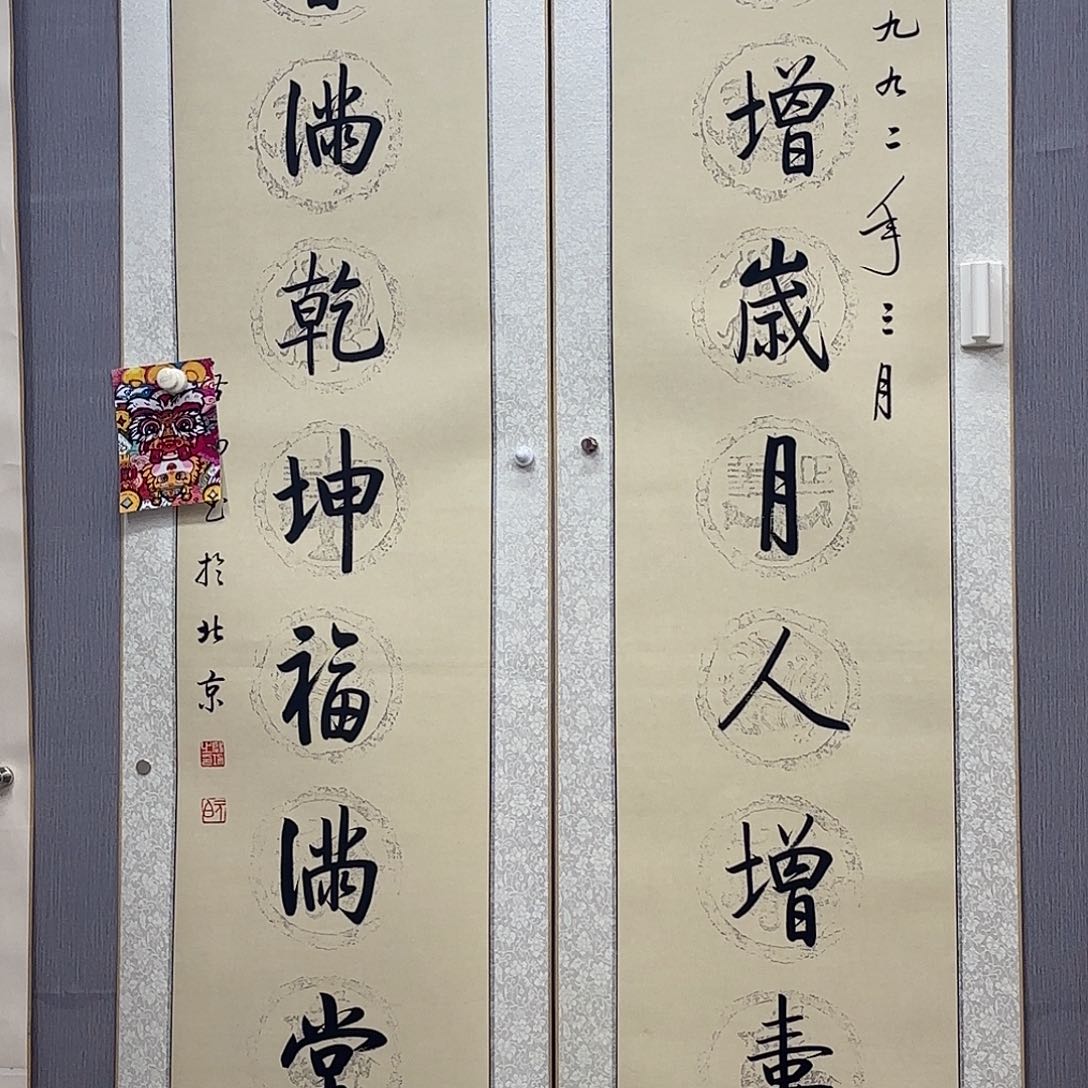 九九二年三月
增歲月人增壽
滿乾坤福滿堂
於北京